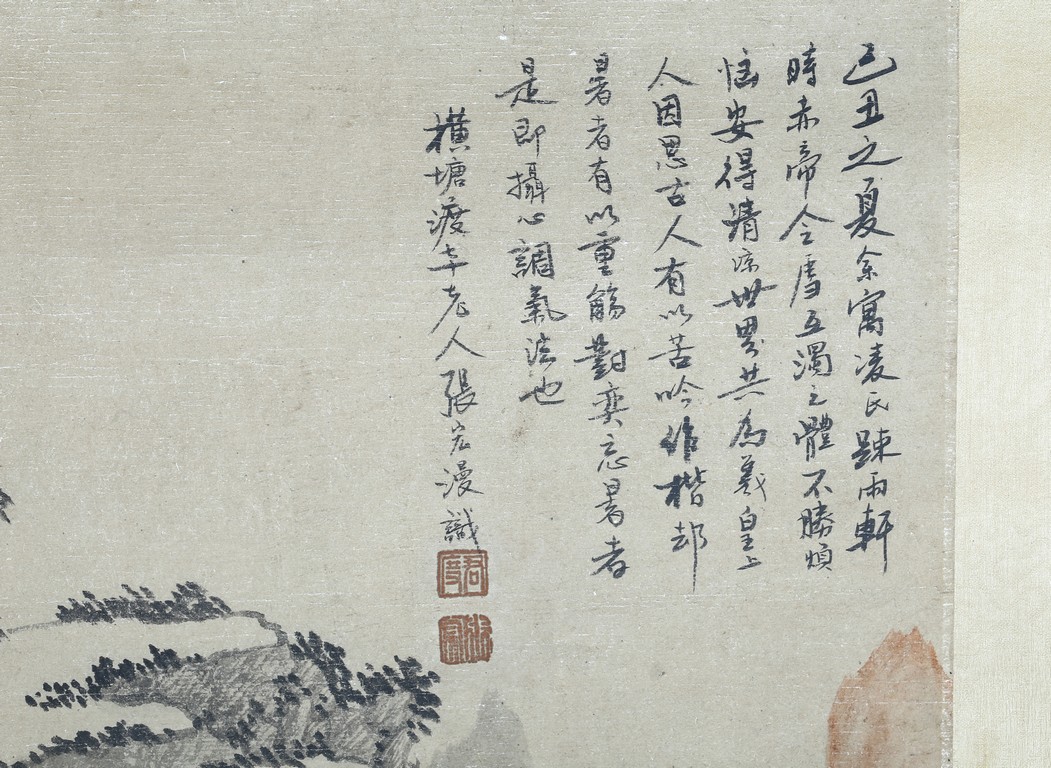 己丑之夏余寓凌氏踈雨軒
時赤帝令虐五濁之體不勝煩
惱安得清涼世界共為羲皇上
人因思古人有以苦吟作楷却
暑者有以重觴對奕忘暑者
是即攝心調氣法也
橫塘渡辛老人張宏漫識
君度